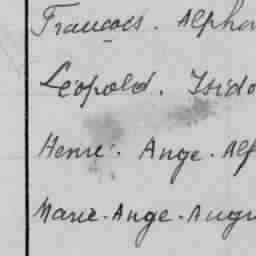 Francois. Alphon
Léopold. Isido
Henri. Ange. Alf
Marie. Ange. Augu